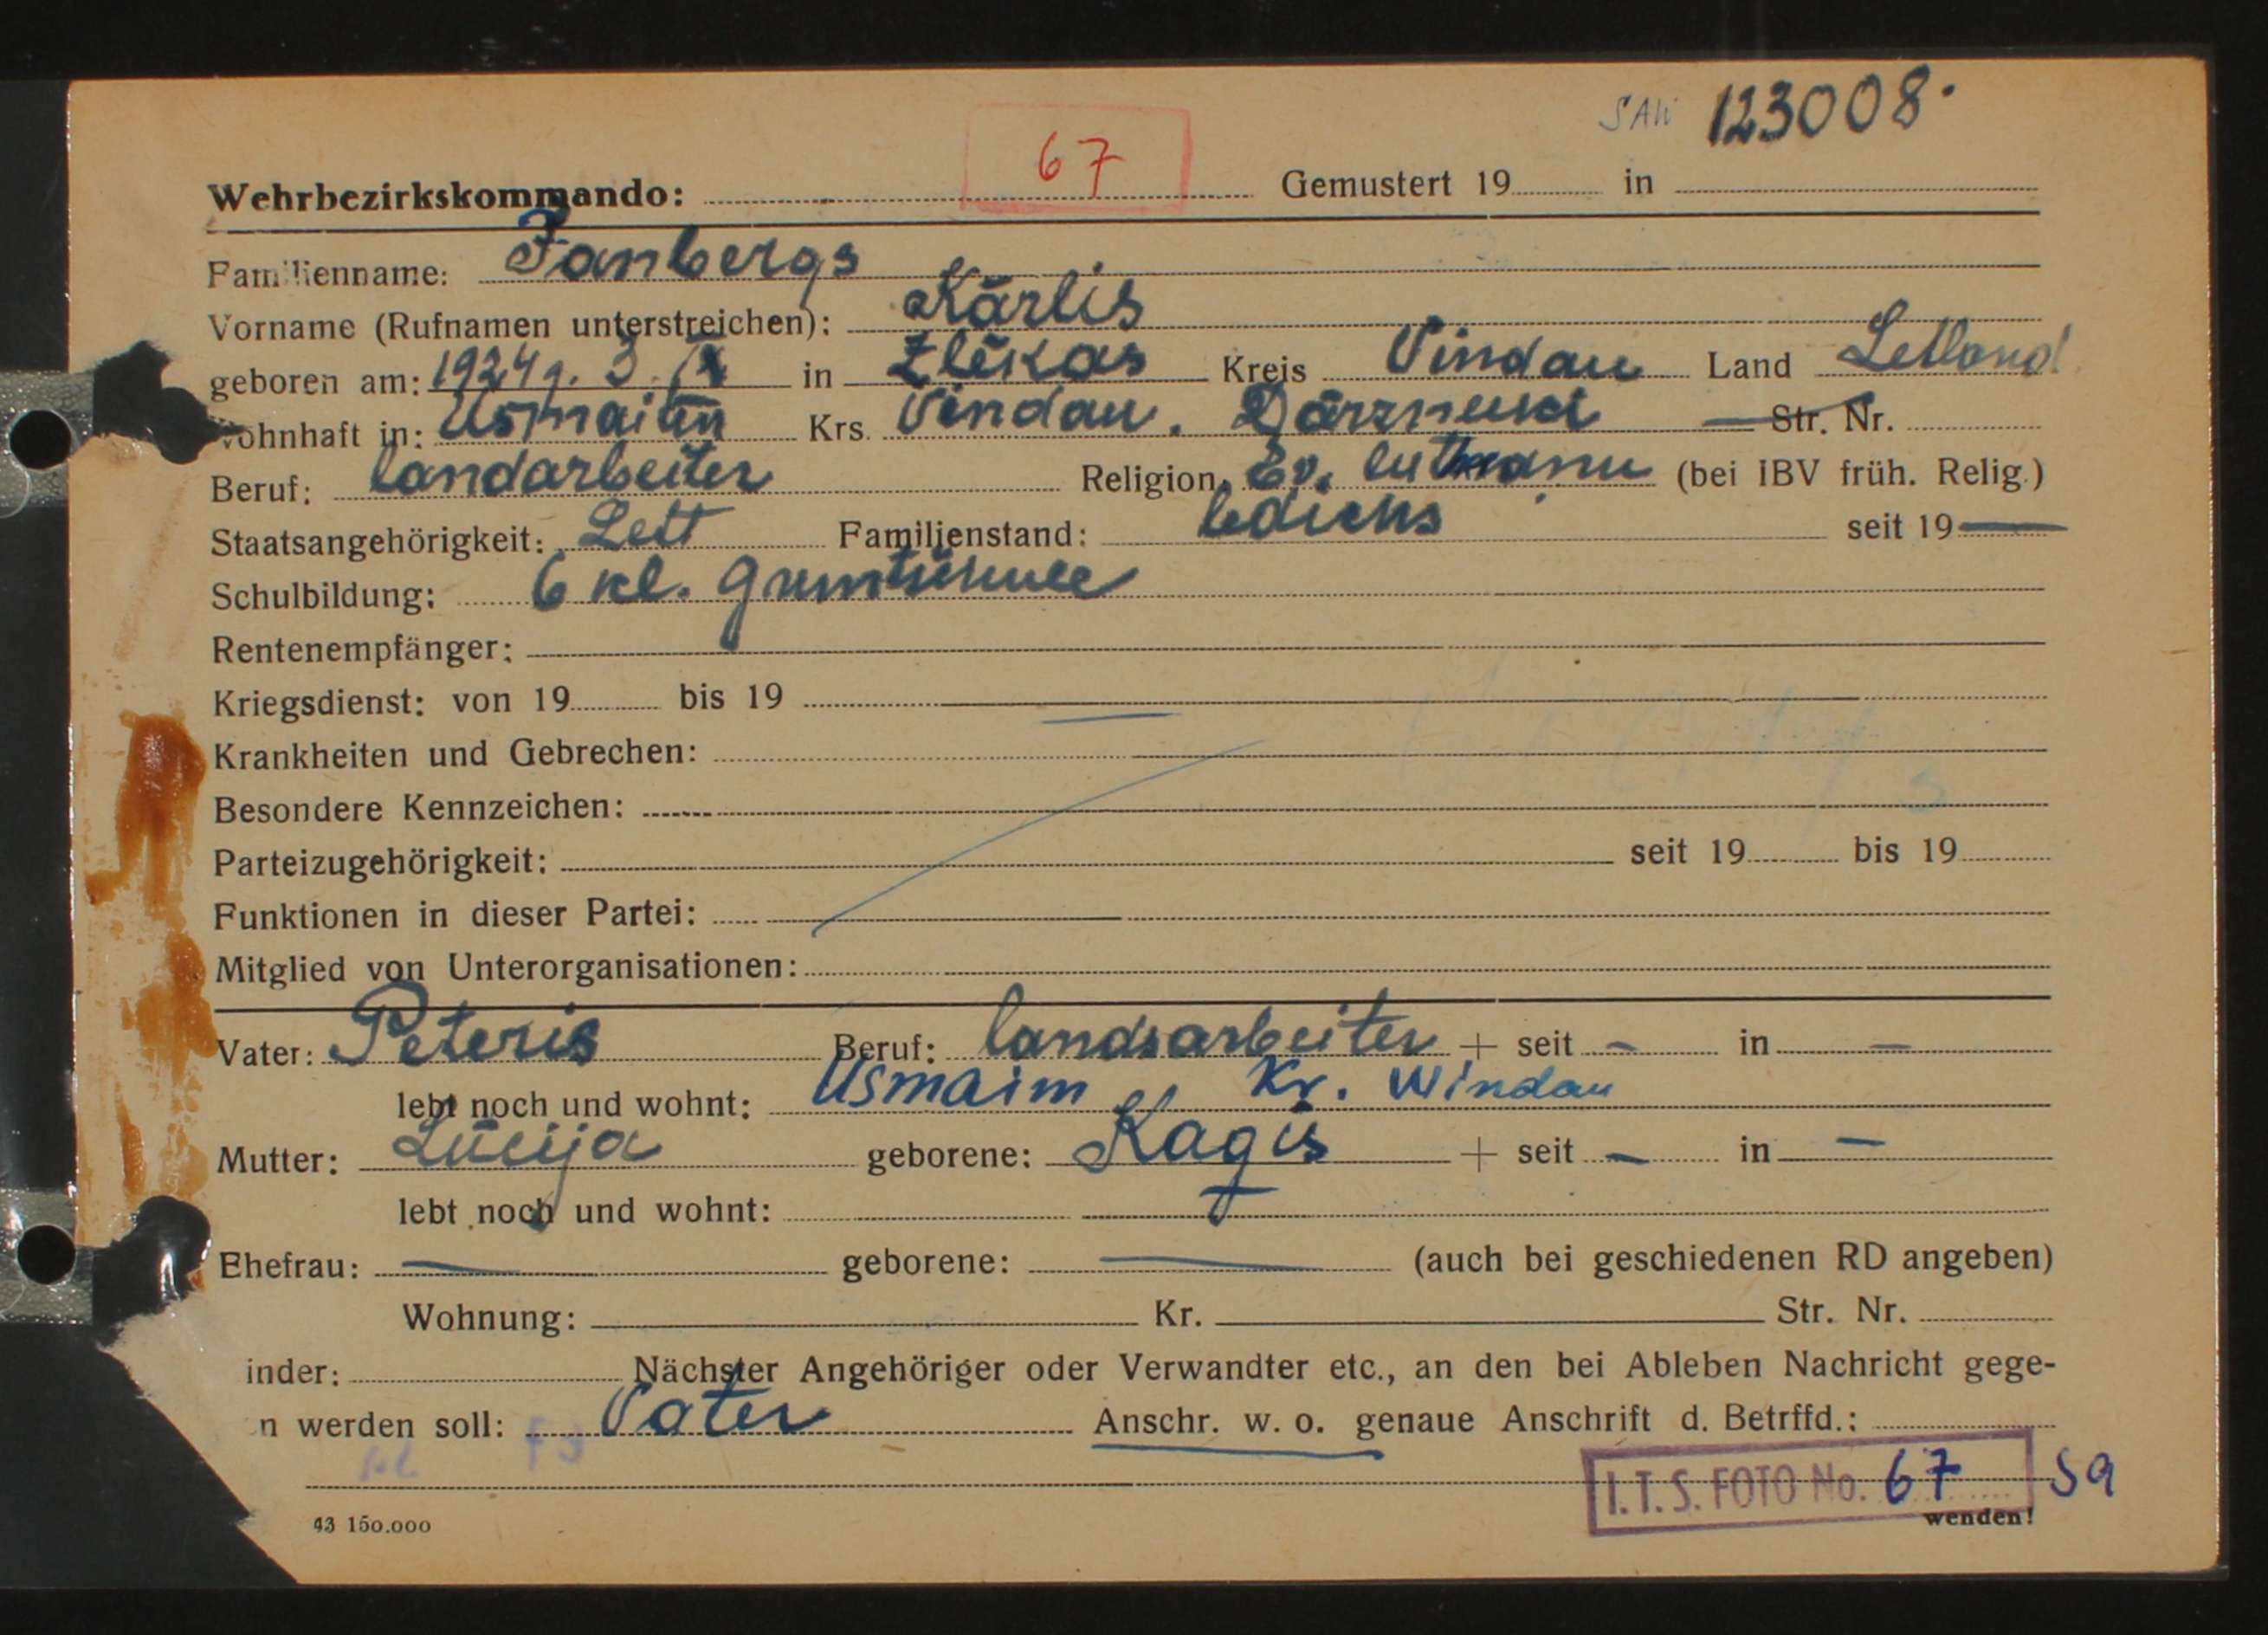 SAW 123008.
67
Wehrbezirkskommando: Gemustert 19 in
Familienname: Janbergs
Vorname (Rufnamen unterstreichen): Kārlis
geboren am: 1924 g. 3. IX in Zlēkas Kreis Vindau Land Letland
wohnhaft in: Usmaiten Krs. Vindau. Str. Nr.
Beruf: landarbeiter Religion. Ev. (bei IBV früh. Relig.)
Staatsangehörigkeit: Lett Familienstand: ledichs seit 19
Schulbildung: 6 kl. gruntschule
Rentenempfänger:
Kriegsdienst: von 19 bis 19
Krankheiten und Gebrechen:
Besondere Kennzeichen:
Parteizugehörigkeit: seit 19 bis 19
Funktionen in dieser Partei:
Mitglied von Unterorganisationen:
Vater: Peteris Beruf: landsarbeiter + seit - in -
lebt noch und wohnt: Usmaim Kr. Windau
Mutter: Lūcija geborene: Kagis + seit - in -
lebt noch und wohnt:
Ehefrau: — geborene: — (auch bei geschiedenen RD angeben)
Wohnung: Kr. Str. Nr.
inder: Nächster Angehöriger oder Verwandter etc., an den bei Ableben Nachricht gege-
n werden soll: Vater Anschr. w. o. genaue Anschrift d. Betrffd.:
I.T.S. FOTO No. 67 Sa
43 150.000 wenden!